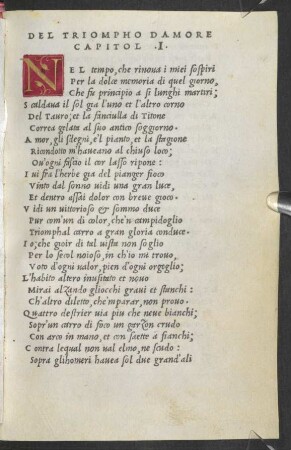 DEL TRIOMPHO DAMORE
CAPITOL .I.
NEL tempo, che rinoua i miei sospiri
Per la dolce memoria di quel giorno,
Che fu principio a si lunghi martiri;
Scaldaua il sol gia l'uno et l'altro corno
Del Tauro; et la fanciulla di Titone
Correa gelata al suo antico soggiorno.
Amor, gli sdegni, e'l pianto, et la stagione
Ricondotto m'haueano al chiuso loco;
Ou'ogni fascio il cor lasso ripone:
Iui fra l'herbe gia del pianger fioco
Vinto dal sonno uidi una gran luce,
Et dentro assai dolor con breue gioco.
Vidi un uittorioso & sommo duce
Pur com'un di color, che'n campidoglio
Triomphal carro a gran gloria conduce.
Io; che gioir di tal uista non soglio
Per lo secol noioso, in ch'io mi trouo,
Voto d'ogni ualor, pien d'ogni orgoglio;
L'habito altero inusitato et nouo
Mirai alzando gliocchi graui et stanchi:
Ch'altro diletto, che'mparar, non prouo.
Quattro destrier uia piu che neue bianchi;
Sopr'un carro di foco un garzon crudo
Con arco in mano, et con saette a fianchi;
Contra lequal non ual elmo, ne scudo:
Sopra glihomeri hauea sol due grand'ali